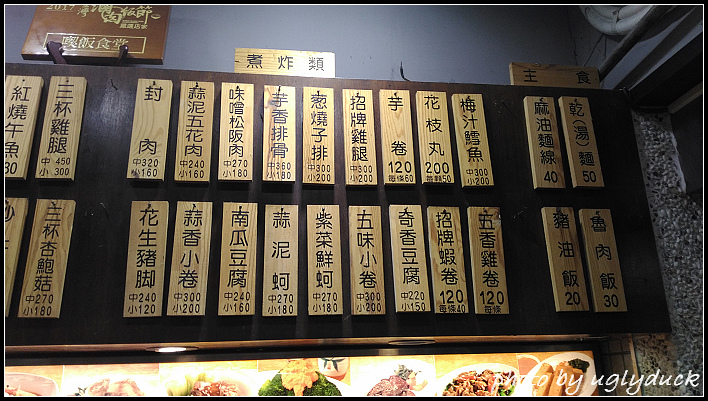 2017
國選店家
喫飯食堂
煮炸類
主食
紅燒午魚
三杯雞腿
中450
小300
封肉
中320
小160
蒜泥五花肉
中240
小160
味噌松阪肉
中270
小180
芋香排骨
中360
小180
蔥燒子排
中300
小200
招牌雞腿
中300
小200
芋卷
120
每條60
花枝丸
200
每顆50
梅汁鱈魚
中300
小200
麻油麵線
40
乾(湯)麵
50
三杯杏鮑菇
中270
小180
花生豬腳
中240
小120
蒜香小卷
中300
小200
南瓜豆腐
中240
小160
蒜泥蚵
中270
小180
紫菜鮮蚵
中270
小180
五味小卷
中300
小200
奇香豆腐
中220
小150
招牌蝦卷
120
每條40
五香雞卷
120
每條
豬油飯
20
魯肉飯
30
photo by uglyduck